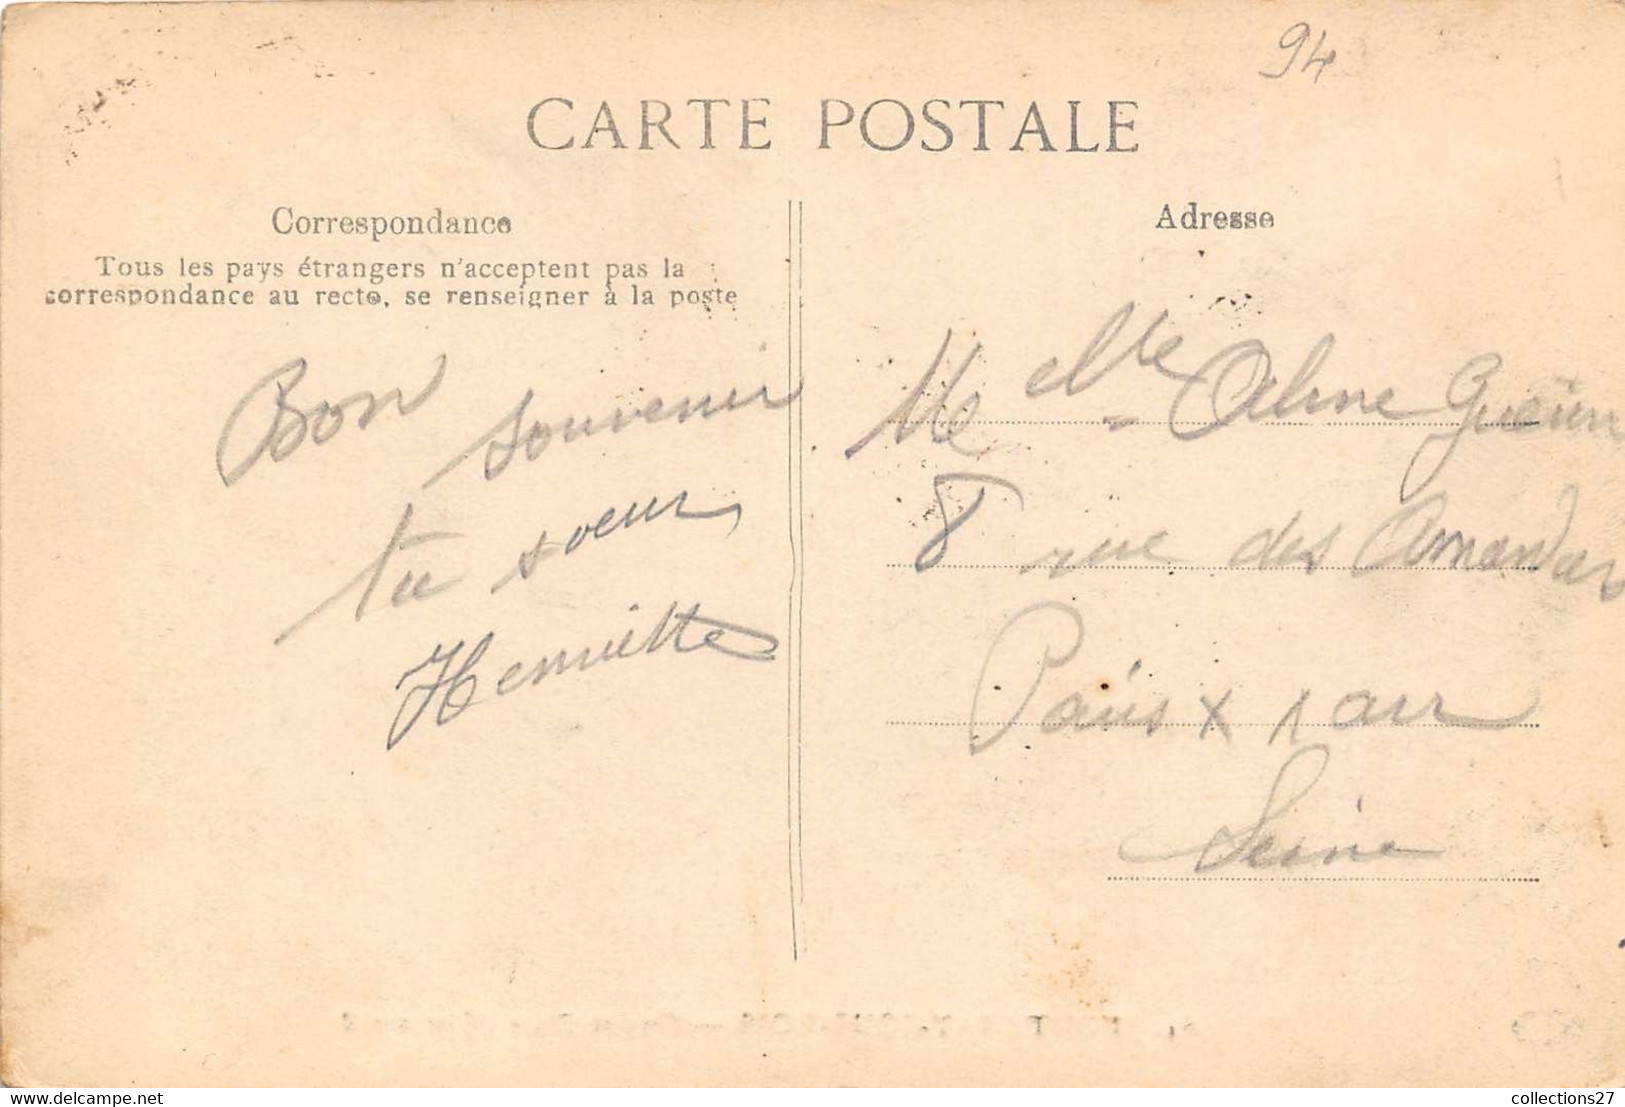 94
CARTE POSTALE
Correspondance
Tous les pays étrangers n'acceptent pas la
correspondance au recto, se renseigner à la poste
Bon
souvenir
ta soeur
Henriette
Adresse
Melle
8 rue des Amandiers
Paris XX arr
Seine
collections27